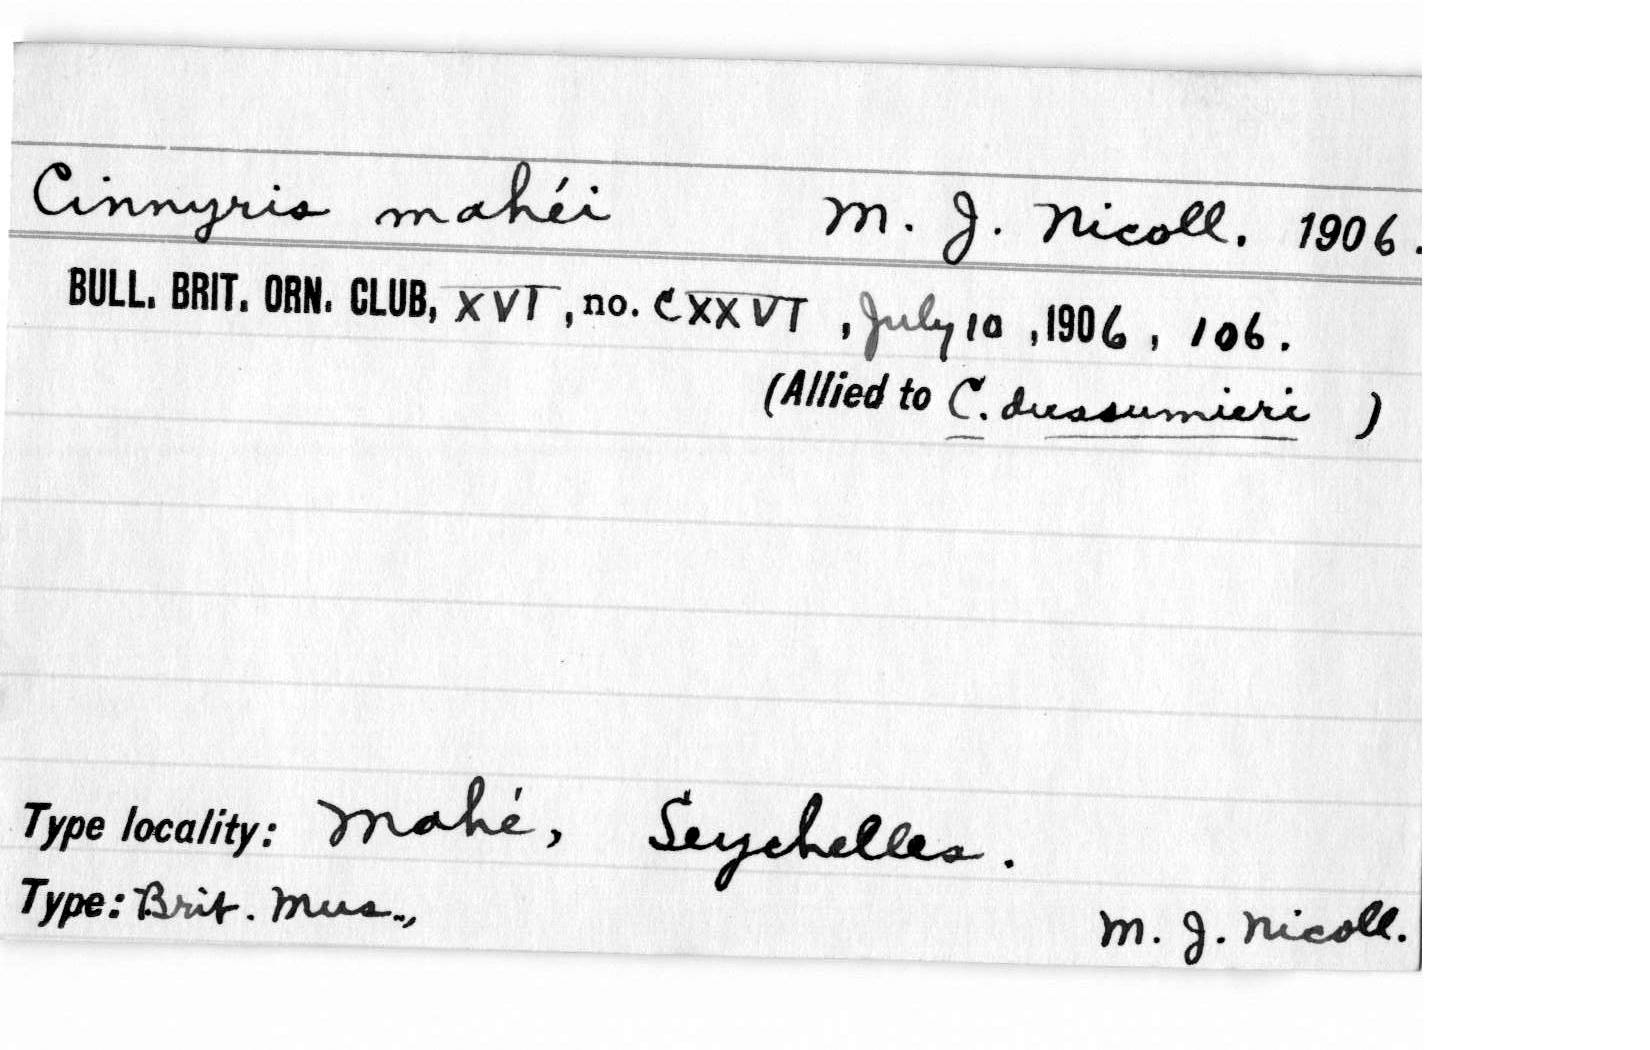 Cinnyris mahéi M. J. Nicoll. 1906.
BULL. BRIT. ORN. CLUB, XVI, no. CXXVI, July 10, 1906, 106.
(Allied to C. dussumieri )
Type locality: Mahé, Seychelles.
Type: Brit. Mus., M. J. Nicoll.